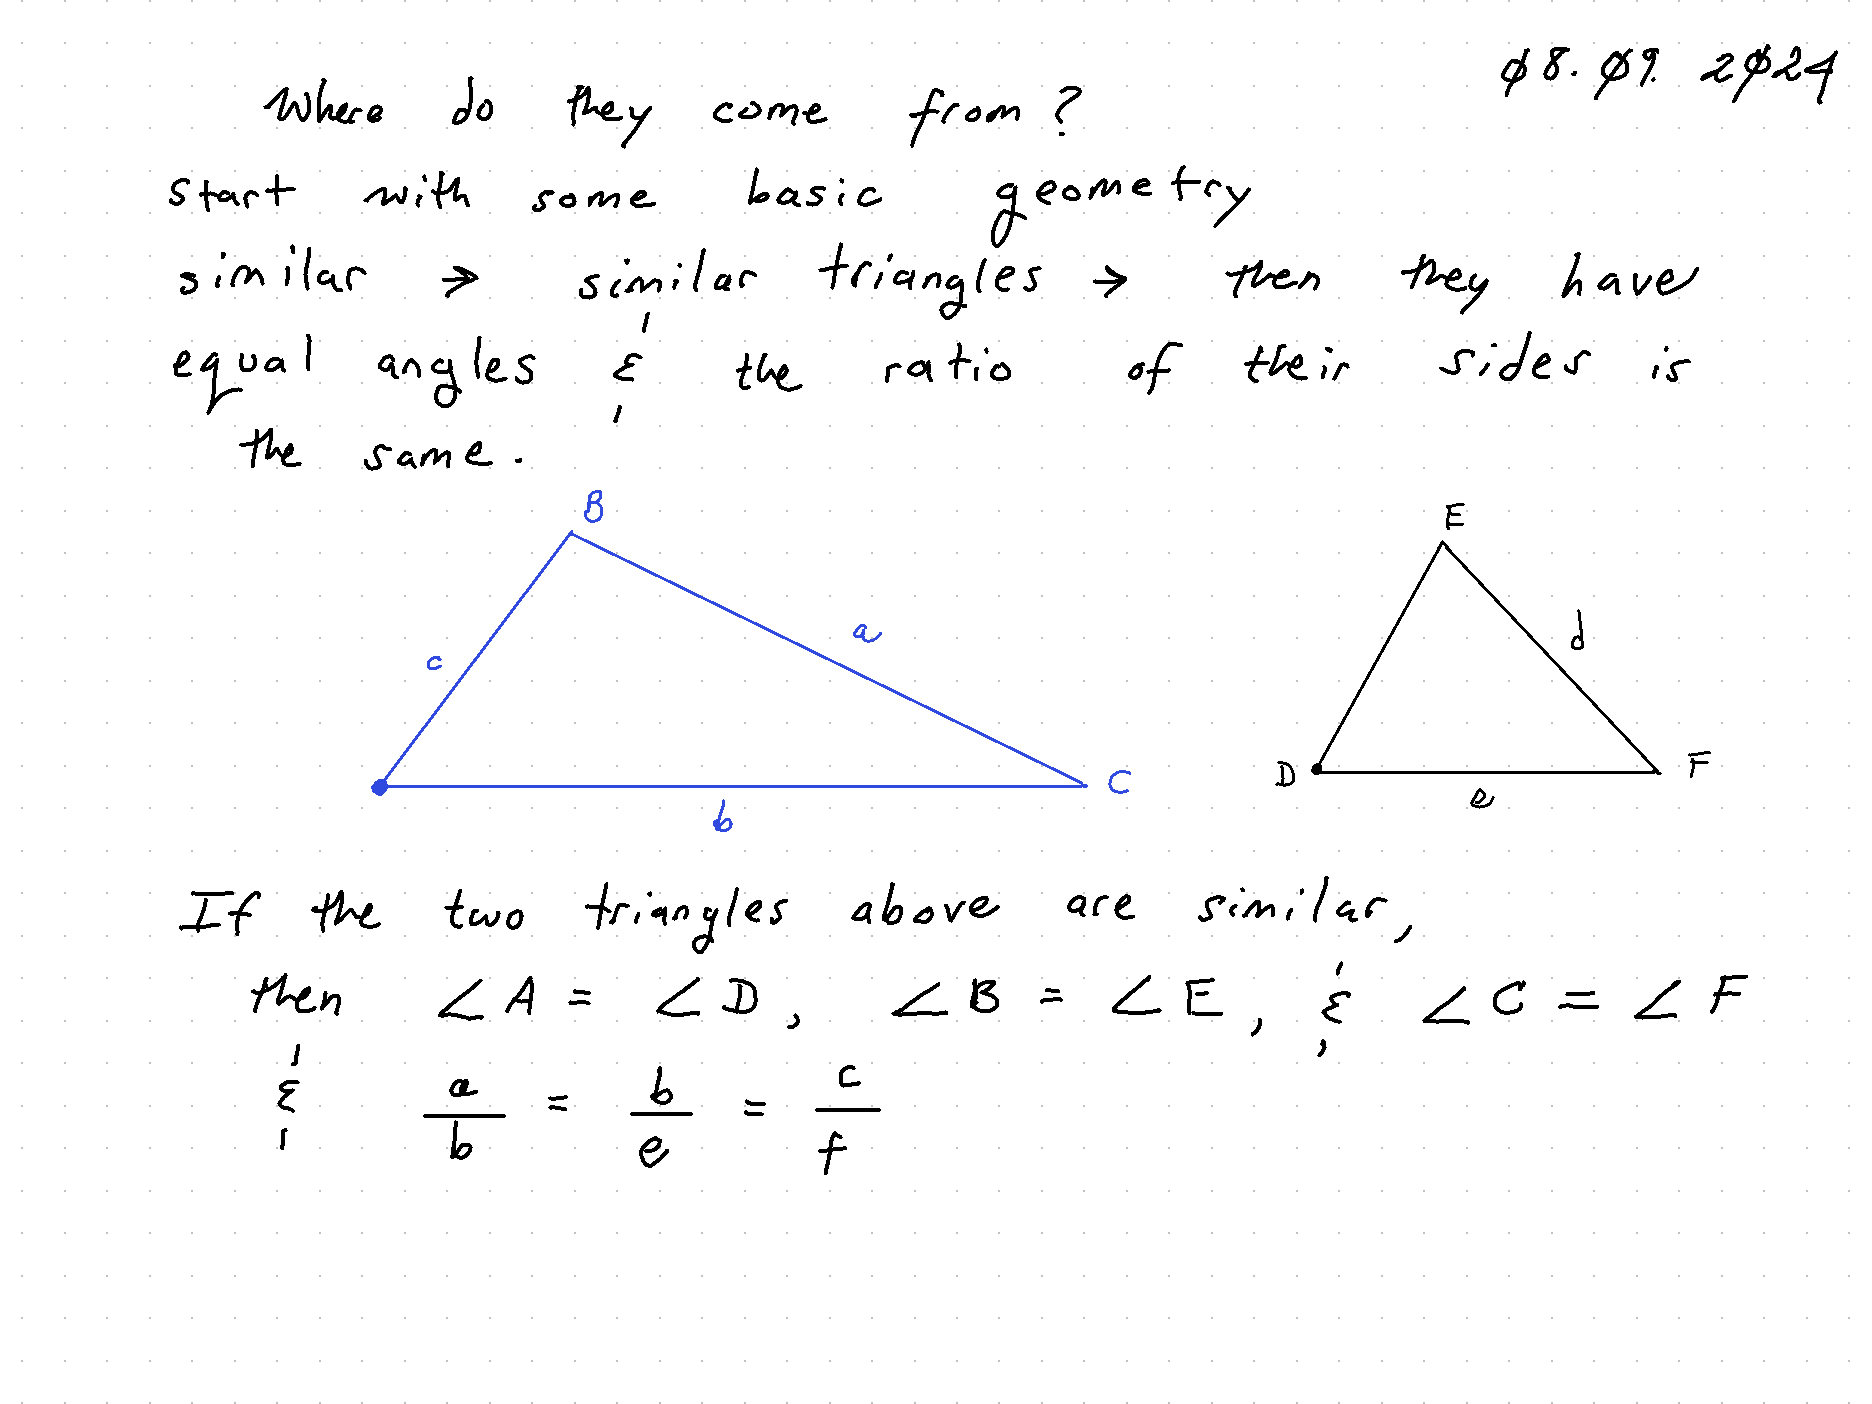 Ø8. Ø9. 2Ø24
Where do they come from?
start with some basic geometry
similar → similar triangles → then they have
equal angles & the ratio of their sides is
the same.
B
E
c
a
d
C
D
F
b
e
If the two triangles above are similar,
then ∠A = ∠D, ∠B = ∠E, & ∠C = ∠F
& a/b = b/e = c/f